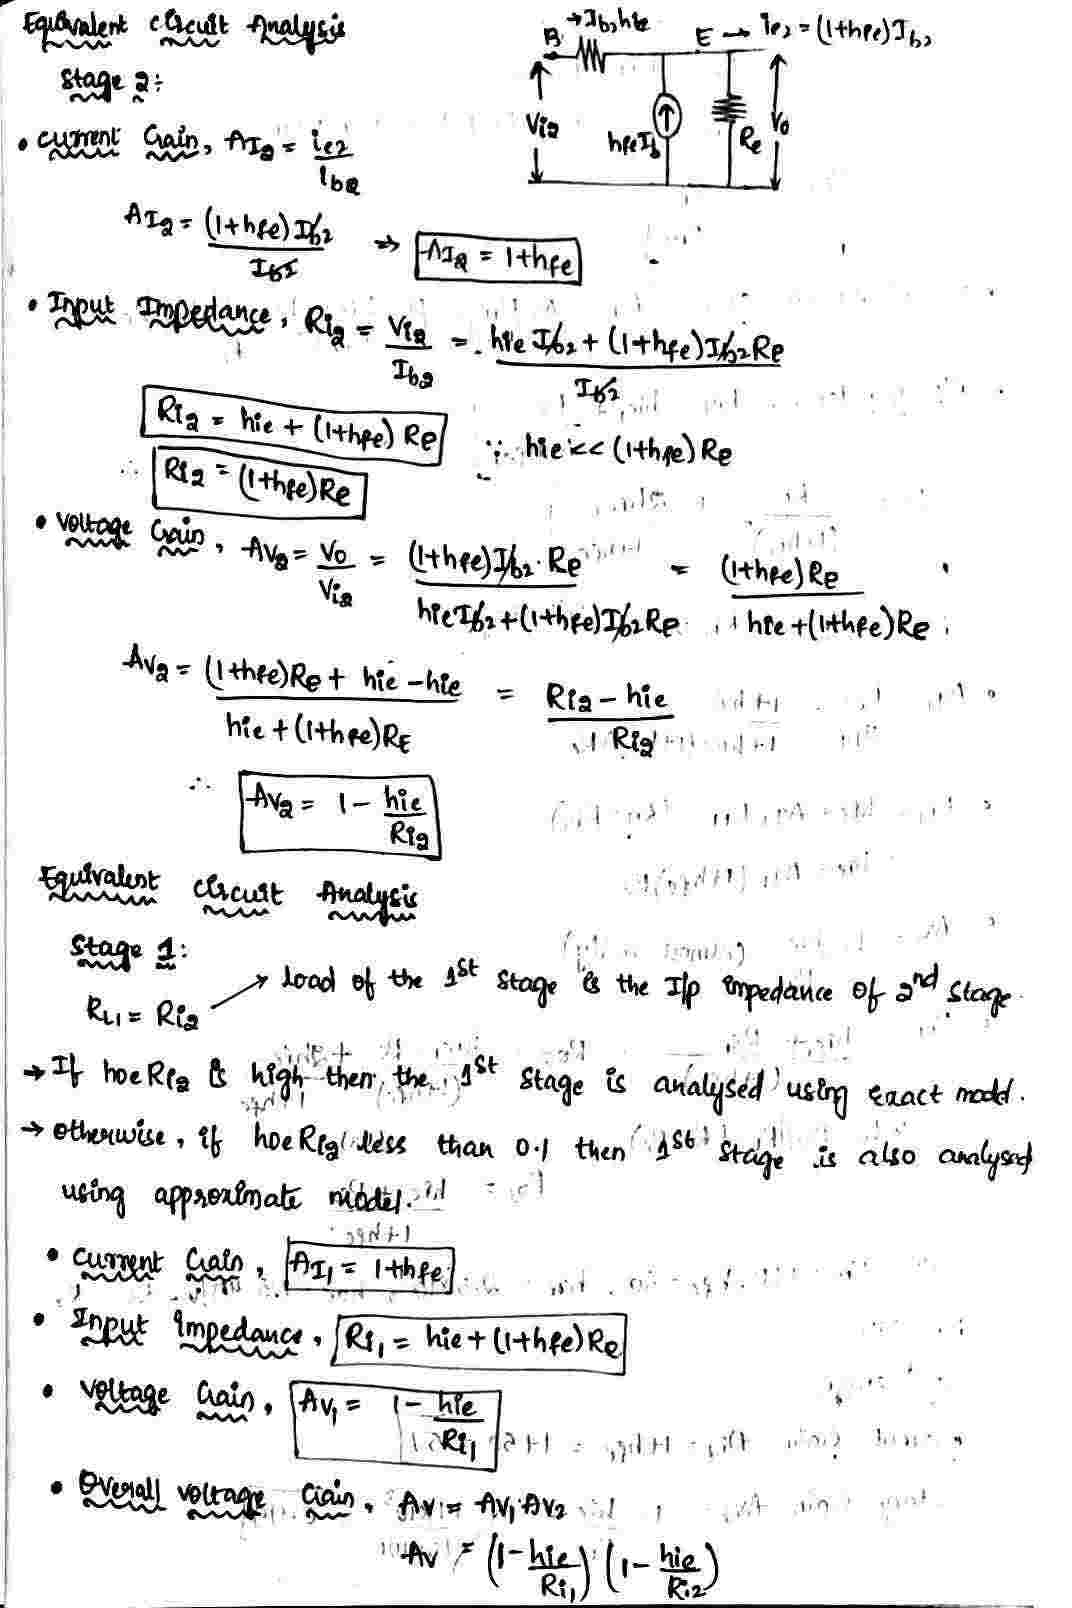 Equivalent circuit Analysis
Stage 2:
→ Ib2hie
B
E → ie2 = (1+hfe)Ib2
Vi2
hfeIb
Re
Vo
• Current Gain, AI2 = ie2/ib2
AI2 = (1+hfe)Ib2/Ib2 ⇒ AI2 = 1+hfe
• Input Impedance, Ri2 = Vi2/Ib2 = hie Ib2 + (1+hfe)Ib2Re/Ib2
Ri2 = hie + (1+hfe) Re ∵ hie << (1+hfe) Re
∴ Ri2 = (1+hfe)Re
• Voltage Gain, AV2 = Vo/Vi2 = (1+hfe)Ib2.Re/hieIb2+(1+hfe)Ib2Re = (1+hfe)Re/hie+(1+hfe)Re
AV2 = (1+hfe)Re + hie - hie/hie + (1+hfe)RE = Ri2 - hie/Ri2
∴ AV2 = 1 - hie/Ri2
Equivalent circuit Analysis
Stage 1:
RL1 = Ri2 → Load of the 1st stage is the I/p impedance of 2nd stage.
→ If hoeRi2 is high then the 1st stage is analysed using Exact model.
→ otherwise, if hoeRi2 less than 0.1 then 1st stage is also analysed
using approximate model.
• Current Gain, AI1 = 1+hfe
• Input Impedance, Ri1 = hie+(1+hfe)Re
• Voltage Gain, AV1 = 1 - hie/Ri1
• Overall voltage Gain, AV = AV1.AV2
AV = (1 - hie/Ri1) (1 - hie/Ri2)